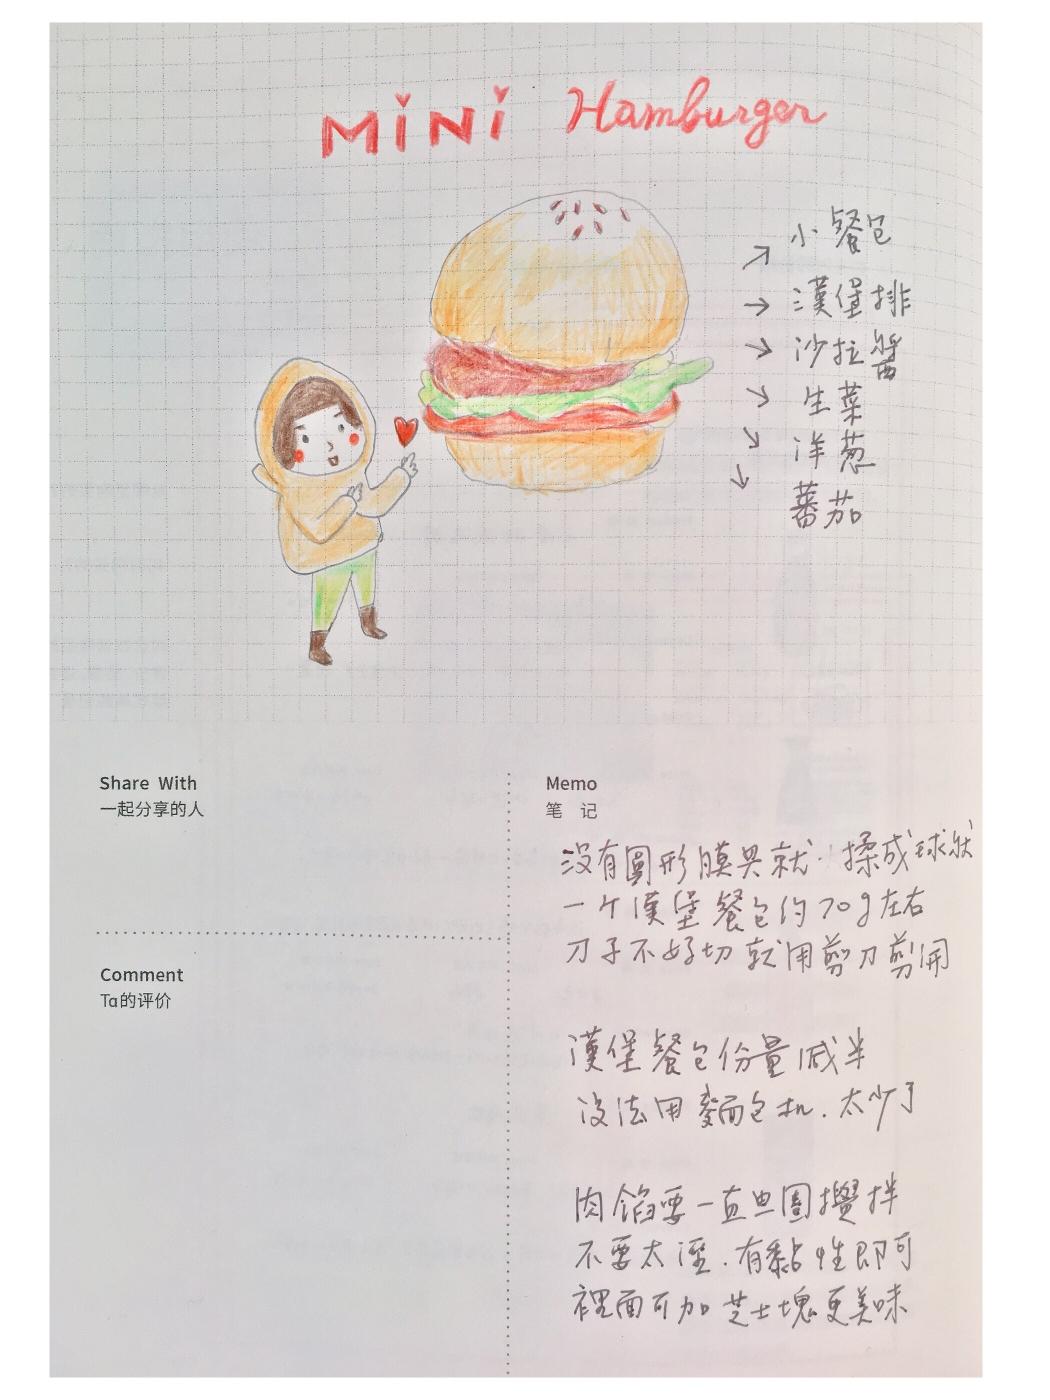 MINI Hamburger
小餐包
漢堡排
沙拉醬
生菜
洋葱
蕃茄
Share With
一起分享的人
Comment
Ta的评价
Memo
笔 记
没有圓形膜具就 揉成球狀
一个漢堡餐包约70g左右
刀子不好切就用剪刀剪開
漢堡餐包份量减半
没法用麵包机.太少了
肉餡要一直 圈攪拌
不要太溼.有黏性即可
裡面可加芝士塊更美味